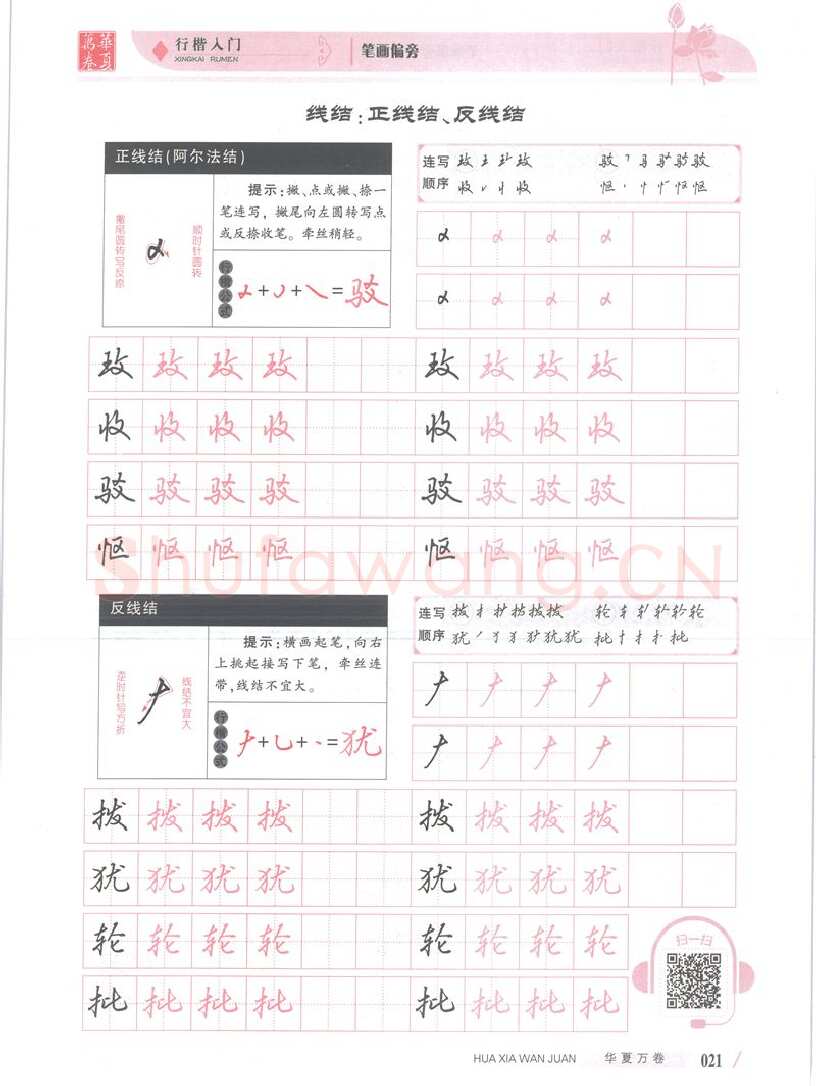 華夏萬卷
行楷入门
XINGKAI RUMEN
笔画偏旁
线结：正线结、反线结
正线结(阿尔法结)
撇尾圆转写反捺
顺时针圆转
提示：撇、点或撇、捺一
笔连写，撇尾向左圆转写点
或反捺收笔。牵丝稍轻。
行楷公式
+ + = 驳
连写
顺序
玫 玫 驳 驳
收 收 怄 怄
玫 玫 玫 玫 玫 玫 玫 玫
收 收 收 收 收 收 收 收
驳 驳 驳 驳 驳 驳 驳 驳
怄 怄 怄 怄 怄 怄 怄 怄
Shufawang.CN
反线结
逆时针写方折
线结不宜大
提示：横画起笔，向右
上挑起接写下笔，牵丝连
带，线结不宜大。
行楷公式
+ + = 犹
连写
顺序
拔 拔 拔 轮 轮 轮
犹 犹 犹 批 批
拔 拔 拔 拔 拔 拔 拔 拔
犹 犹 犹 犹 犹 犹 犹 犹
轮 轮 轮 轮 轮 轮 轮 轮
批 批 批 批 批 批 批 批
扫一扫
HUA XIA WAN JUAN 华夏万卷 021 /